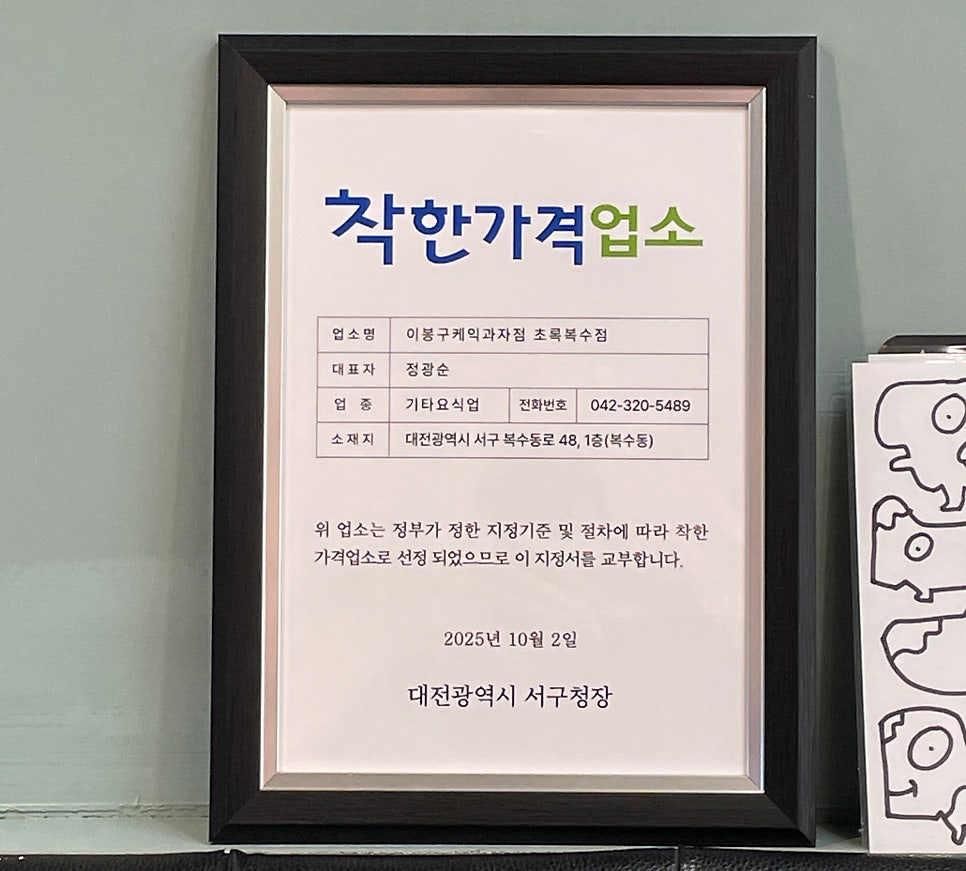 착한가격업소
업소명 이봉구케익과자점 초록복수점
대표자 정광순
업 종 기타요식업 전화번호 042-320-5489
소재지 대전광역시 서구 복수동로 48, 1층(복수동)
위 업소는 정부가 정한 지정기준 및 절차에 따라 착한
가격업소로 선정 되었으므로 이 지정서를 교부합니다.
2025년 10월 2일
대전광역시 서구청장